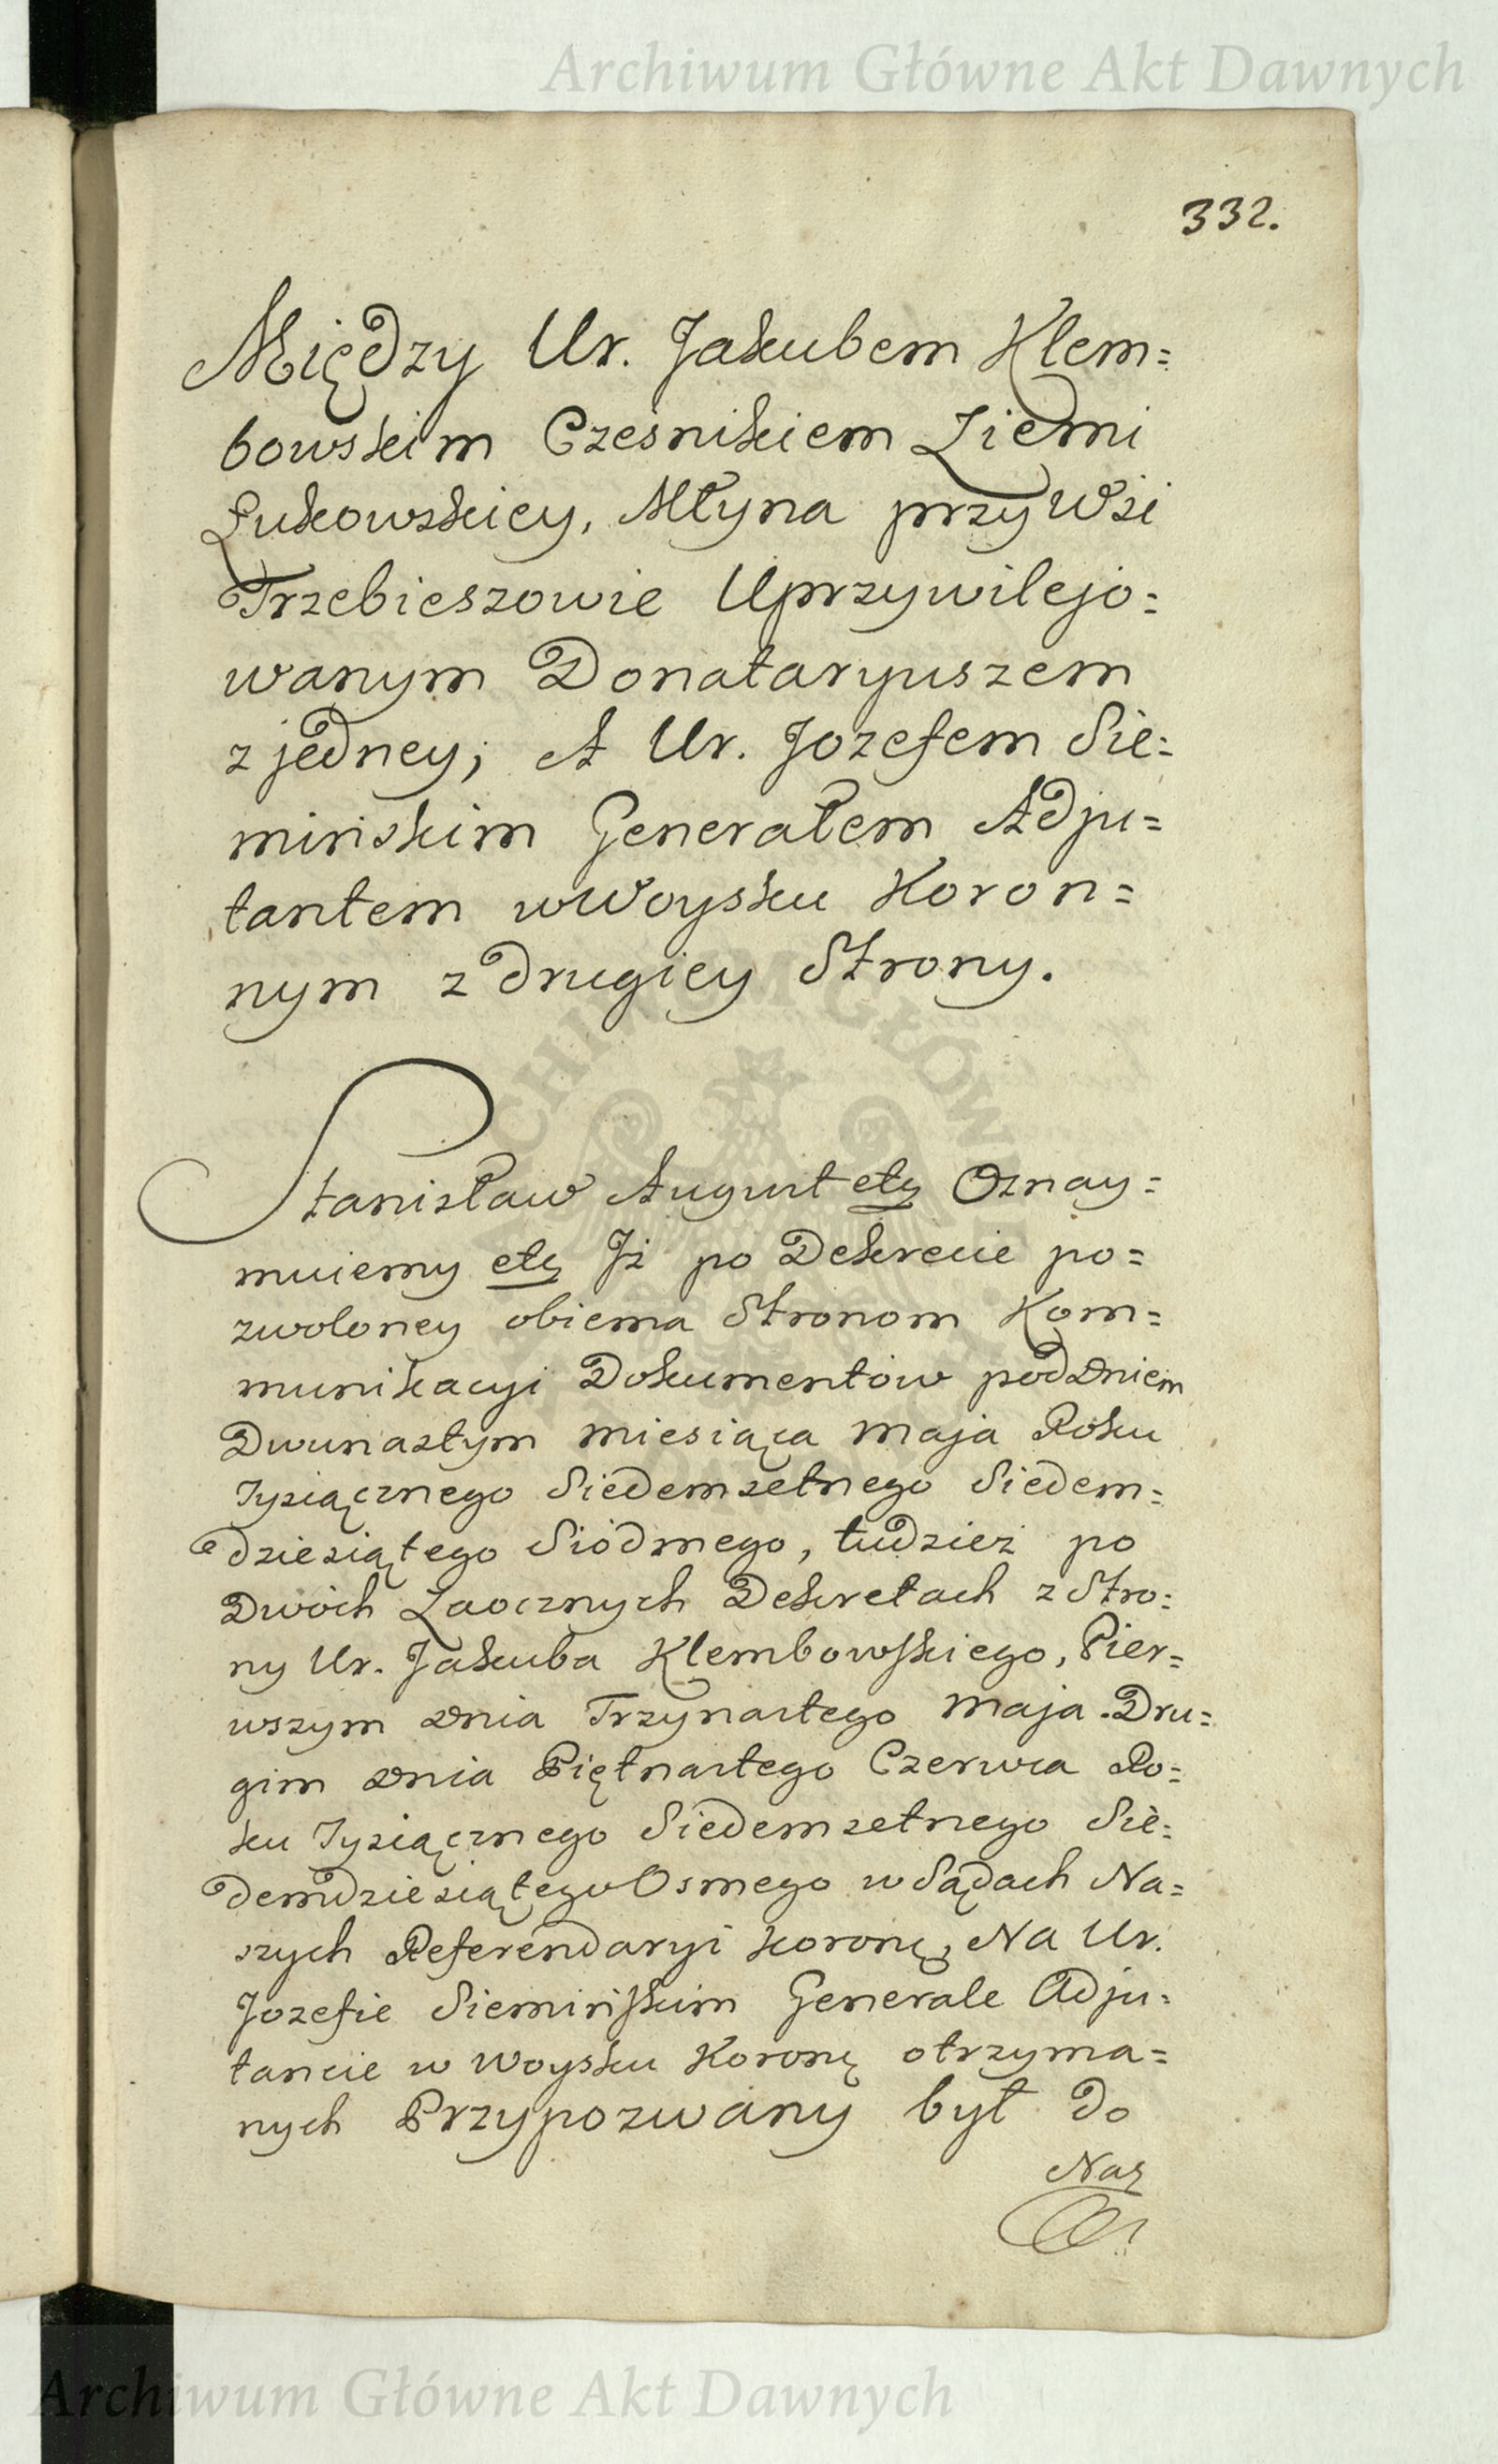 Archiwum Główne Akt Dawnych
332.
Między Ur. Jakubem Klem=
bowskim Cześnikiem Ziemi
Łukowskiey, Młyna przy Wsi
Trzebieszowie Uprzywilejo=
wanym Donataryuszem
z jedney; A Ur. Jozefem Sie=
mińskim Generałem Adju=
tantem w Woysku Koron=
nym z drugiey Strony.
Stanisław August etc Oznay=
muiemy etc Iż po Dekrecie po=
zwoloney obiema Stronom Kom=
munikacyi Dokumentow pod Dniem
Dwunastym miesiąca Maja Roku
Tysiącznego Siedemsetnego Siedem=
dziesiątego Siódmego, tudzież po
Dwóch Zaocznych Dekretach z Stro=
ny Ur. Jakuba Klembowskiego, Pier=
wszym Dnia Trzynastego Maja. Dru=
gim Dnia Piętnastego Czerwca Ro=
ku Tysiącznego Siedemsetnego Sie=
demdziesiątego Osmego w Sądach Na=
szych Referendaryi koronę, Na Ur.
Jozefie Siemińskim Generale Adju=
tancie w Woysku Koronę otrzyma=
nych Przypozwany był do
Nas
Archiwum Główne Akt Dawnych